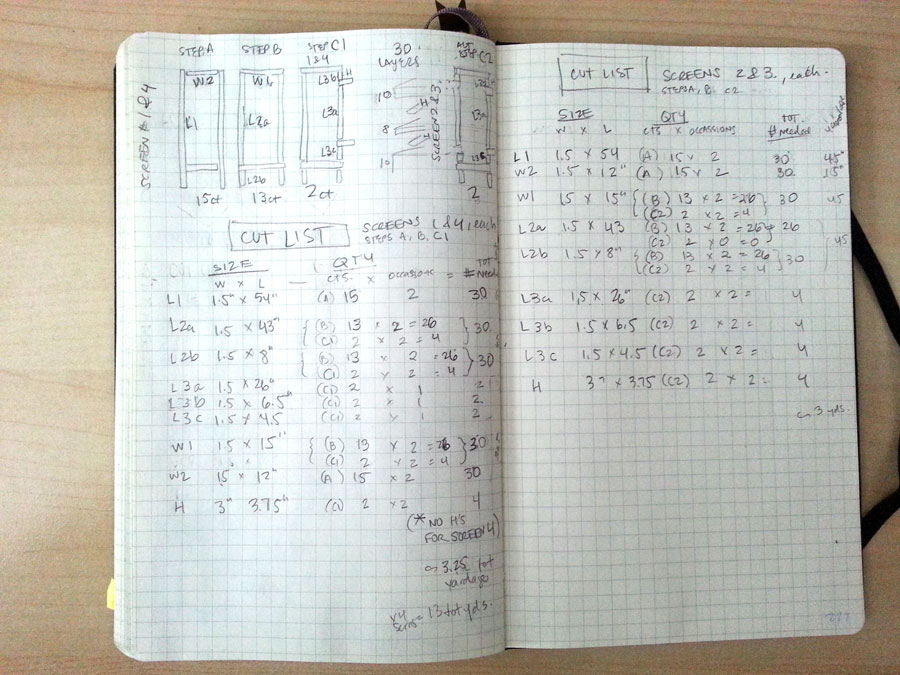 STEP A STEP B STEP C1 30 ALT STEP C2
1&4 LAYERS
SCREEN # 1&4
W2 W1 L3b H
L1 L2a L3a 10 8 10 H SCREEN 2&3 L3a
L3c L3b
L2b
15ct 13ct 2ct 2
CUT LIST SCREENS 1&4, each
STEPS A, B, C1
SIZE QTY TOT
W x L — CTS x OCCASIONS = # Needed
L1 1.5" x 54" (A) 15 2 30
L2a 1.5 x 43" { (B) 13 x 2 = 26 } 30
(C1) 2 x 2 = 4
L2b 1.5 x 8" { (B) 13 x 2 = 26 } 30
(C1) 2 x 2 = 4
L3a 1.5 x 26" (C1) 2 x 1 2
L3b 1.5 x 6.5" (C1) 2 x 1 2
L3c 1.5 x 4.5 (C1) 2 x 1 2
W1 15 x 15" { (B) 13 x 2 = 26 } 30
(C1) 2 x 2 = 4
W2 15" x 12" (A) 15 x 2 30
H 3" 3.75" (C1) 2 x 2 4
(* NO H'S
FOR SCREEN 4)
~ 3.25 tot
yardage
x 4
scrns = 13 tot yds.
CUT LIST SCREENS 2&3, each.
STEPS A, B, C2
SIZE QTY TOT.
W x L CTS x OCCASSIONS # Needed
L1 1.5 x 54 (A) 15 x 2 30 45"
W2 1.5 x 12" (A) 15 x 2 30 15"
W1 15 x 15" { (B) 13 x 2 = 26 } 30 45
(C2) 2 x 2 = 4
L2a 1.5 x 43 (B) 13 x 2 = 26 26
(C2) 2 x 0 = 0
45
L2b 1.5 x 8" { (B) 13 x 2 = 26 } 30
(C2) 2 x 2 = 4
L3a 1,5 x 26" (C2) 2 x 2 = 4
L3b 1.5 x 6.5 (C2) 2 x 2 = 4
L3c 1.5 x 4.5 (C2) 2 x 2 = 4
H 3" x 3.75 (C2) 2 x 2 = 4
~ 3 yds.